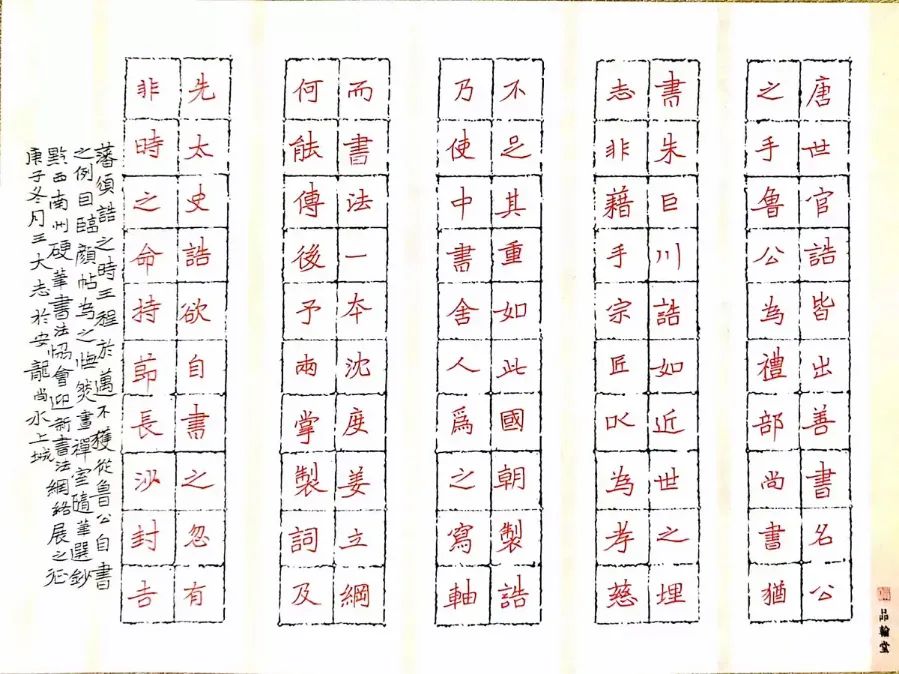 唐世官誥皆出善書名公
之手魯公為禮部尚書猶
書朱巨川誥如近世之埋
志非藉手宗匠㕥為孝慈
不足其重如此國朝製誥
乃使中書舍人爲之寫軸
而書法一本沈度姜立綱
何能傳後予兩掌製詞及
先太史誥欲自書之忽有
非時之命持節長沙封吉
藩須誥之時王程於邁不獲從魯公自書
之例因臨顏帖為之憮然畫禪室隨筆選鈔
黔西南州硬筆書法協會迎新書法網絡展之征
庚子冬月王大志於安龍尚水上城
品翰堂